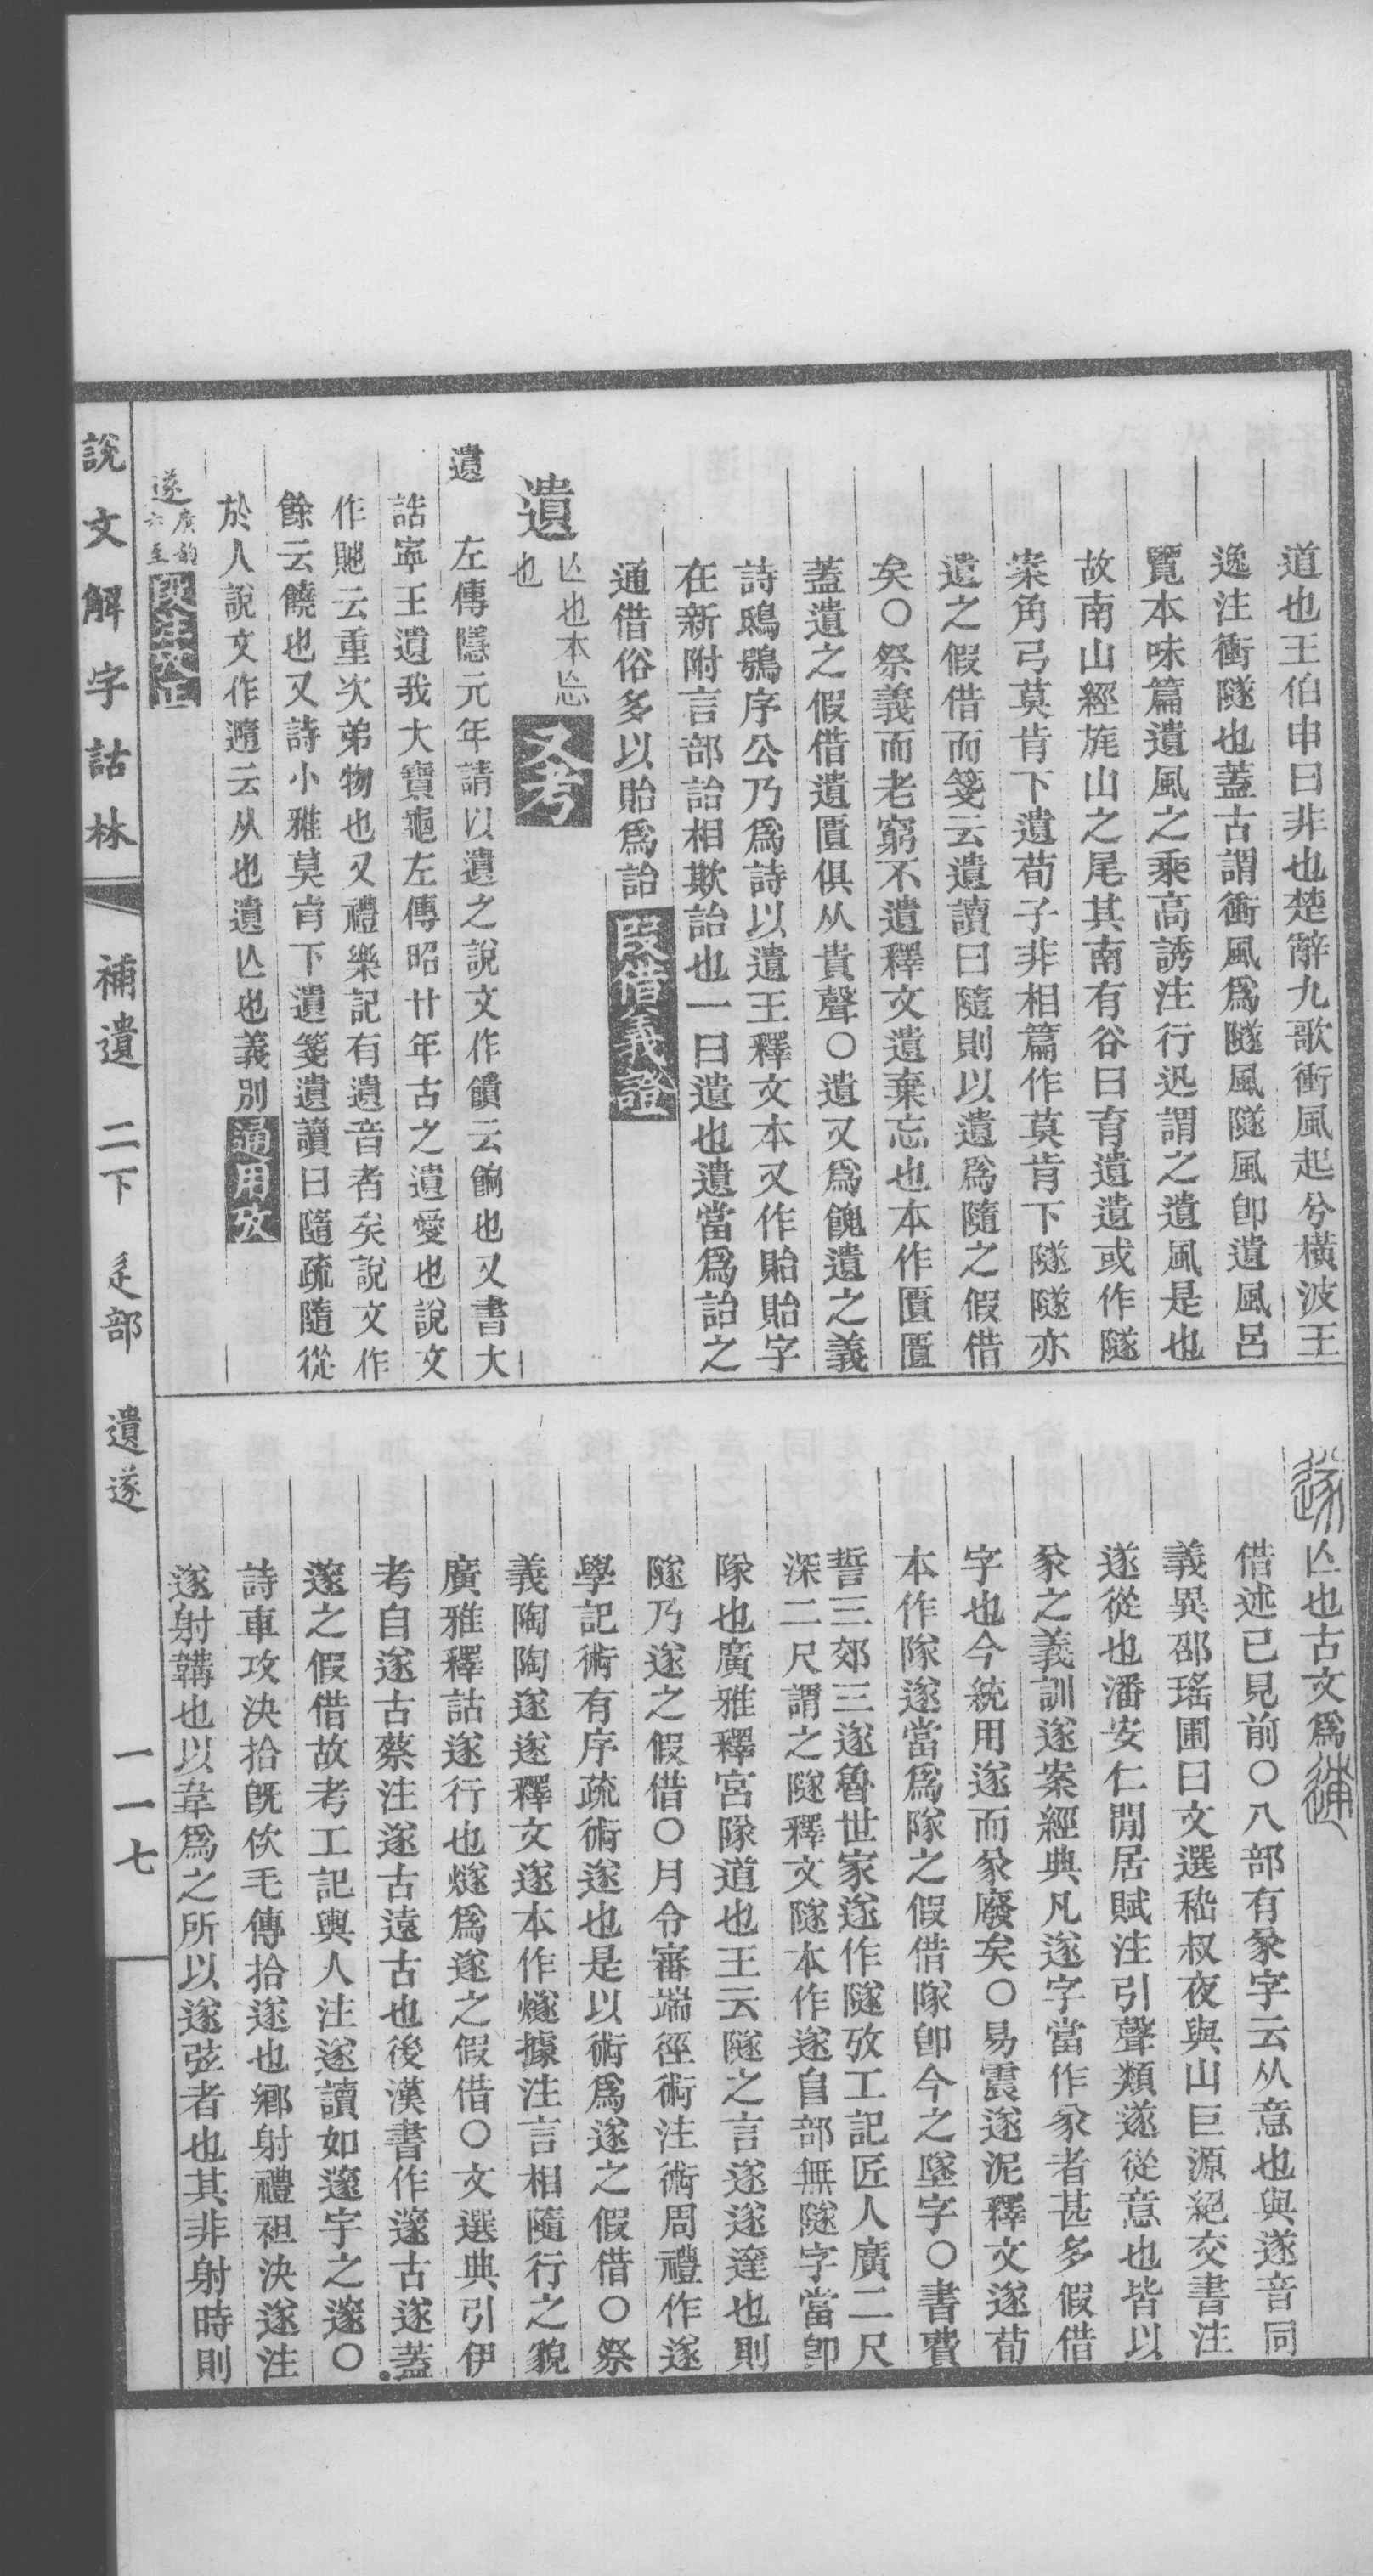 道也王伯申曰非也楚辭九歌衝風起兮橫波王
逸注衝隧也蓋古謂衝風爲隧風隧風卽遺風呂
覽本味篇遺風之乘高誘注行迅謂之遺風是也
故南山經旄山之尾其南有谷曰育遺遺或作隧
案角弓莫肯下遺荀子非相篇作莫肯下隧隧亦
遺之假借而箋云遺讀曰隨則以遺爲隨之假借
矣○祭義而老窮不遺釋文遺棄忘也本作匱匱
蓋遺之假借遺匱俱从貴聲○遺又爲餽遺之義
詩鴟鴞序公乃爲詩以遺王釋文本又作貽貽字
在新附言部詒相欺詒也一曰遺也遺當爲詒之
通借俗多以貽爲詒 段借義證
遺 亾也本㤀也 又考
遺 左傳隱元年請以遺之說文作饋云餉也又書大
誥寧王遺我大寶龜左傳昭廿年古之遺愛也說文
作貤云重次弟物也又禮樂記有遺音者矣說文作
餘云饒也又詩小雅莫肯下遺箋遺讀曰隨疏隨從
於人說文作遀云从也遺亾也義別 通用攷
遂 廣韵六至 段注攷正
說文解字詁林 補遺 二下 辵部 遺遂 一一七
遂 亾也古文爲𨔶
借述已見前○八部有㒸字云从意也與遂音同
義異邵瑤圃曰文選嵇叔夜與山巨源絕交書注
遂從也潘安仁閒居賦注引聲類遂從意也皆以
㒸之義訓遂案經典凡遂字當作㒸者甚多假借
字也今統用遂而㒸廢矣○易震遂泥釋文遂荀
本作隊遂當爲隊之假借隊卽今之墜字○書費
誓三郊三遂魯世家遂作隧攷工記匠人廣二尺
深二尺謂之隧釋文隧本作遂𨸏部無隧字當卽
隊也廣雅釋宮隊道也王云隧之言遂遂達也則
隧乃遂之假借○月令審端徑術注術周禮作遂
學記術有序疏術遂也是以術爲遂之假借○祭
義陶陶遂遂釋文遂本作燧據注言相隨行之貌
廣雅釋詁遂行也燧爲遂之假借○文選典引伊
考自遂古蔡注遂古遠古也後漢書作邃古遂蓋
邃之假借故考工記輿人注遂讀如邃宇之邃○
詩車攻決拾旣佽毛傳拾遂也鄉射禮袒決遂注
遂射韝也以韋爲之所以遂弦者也其非射時則